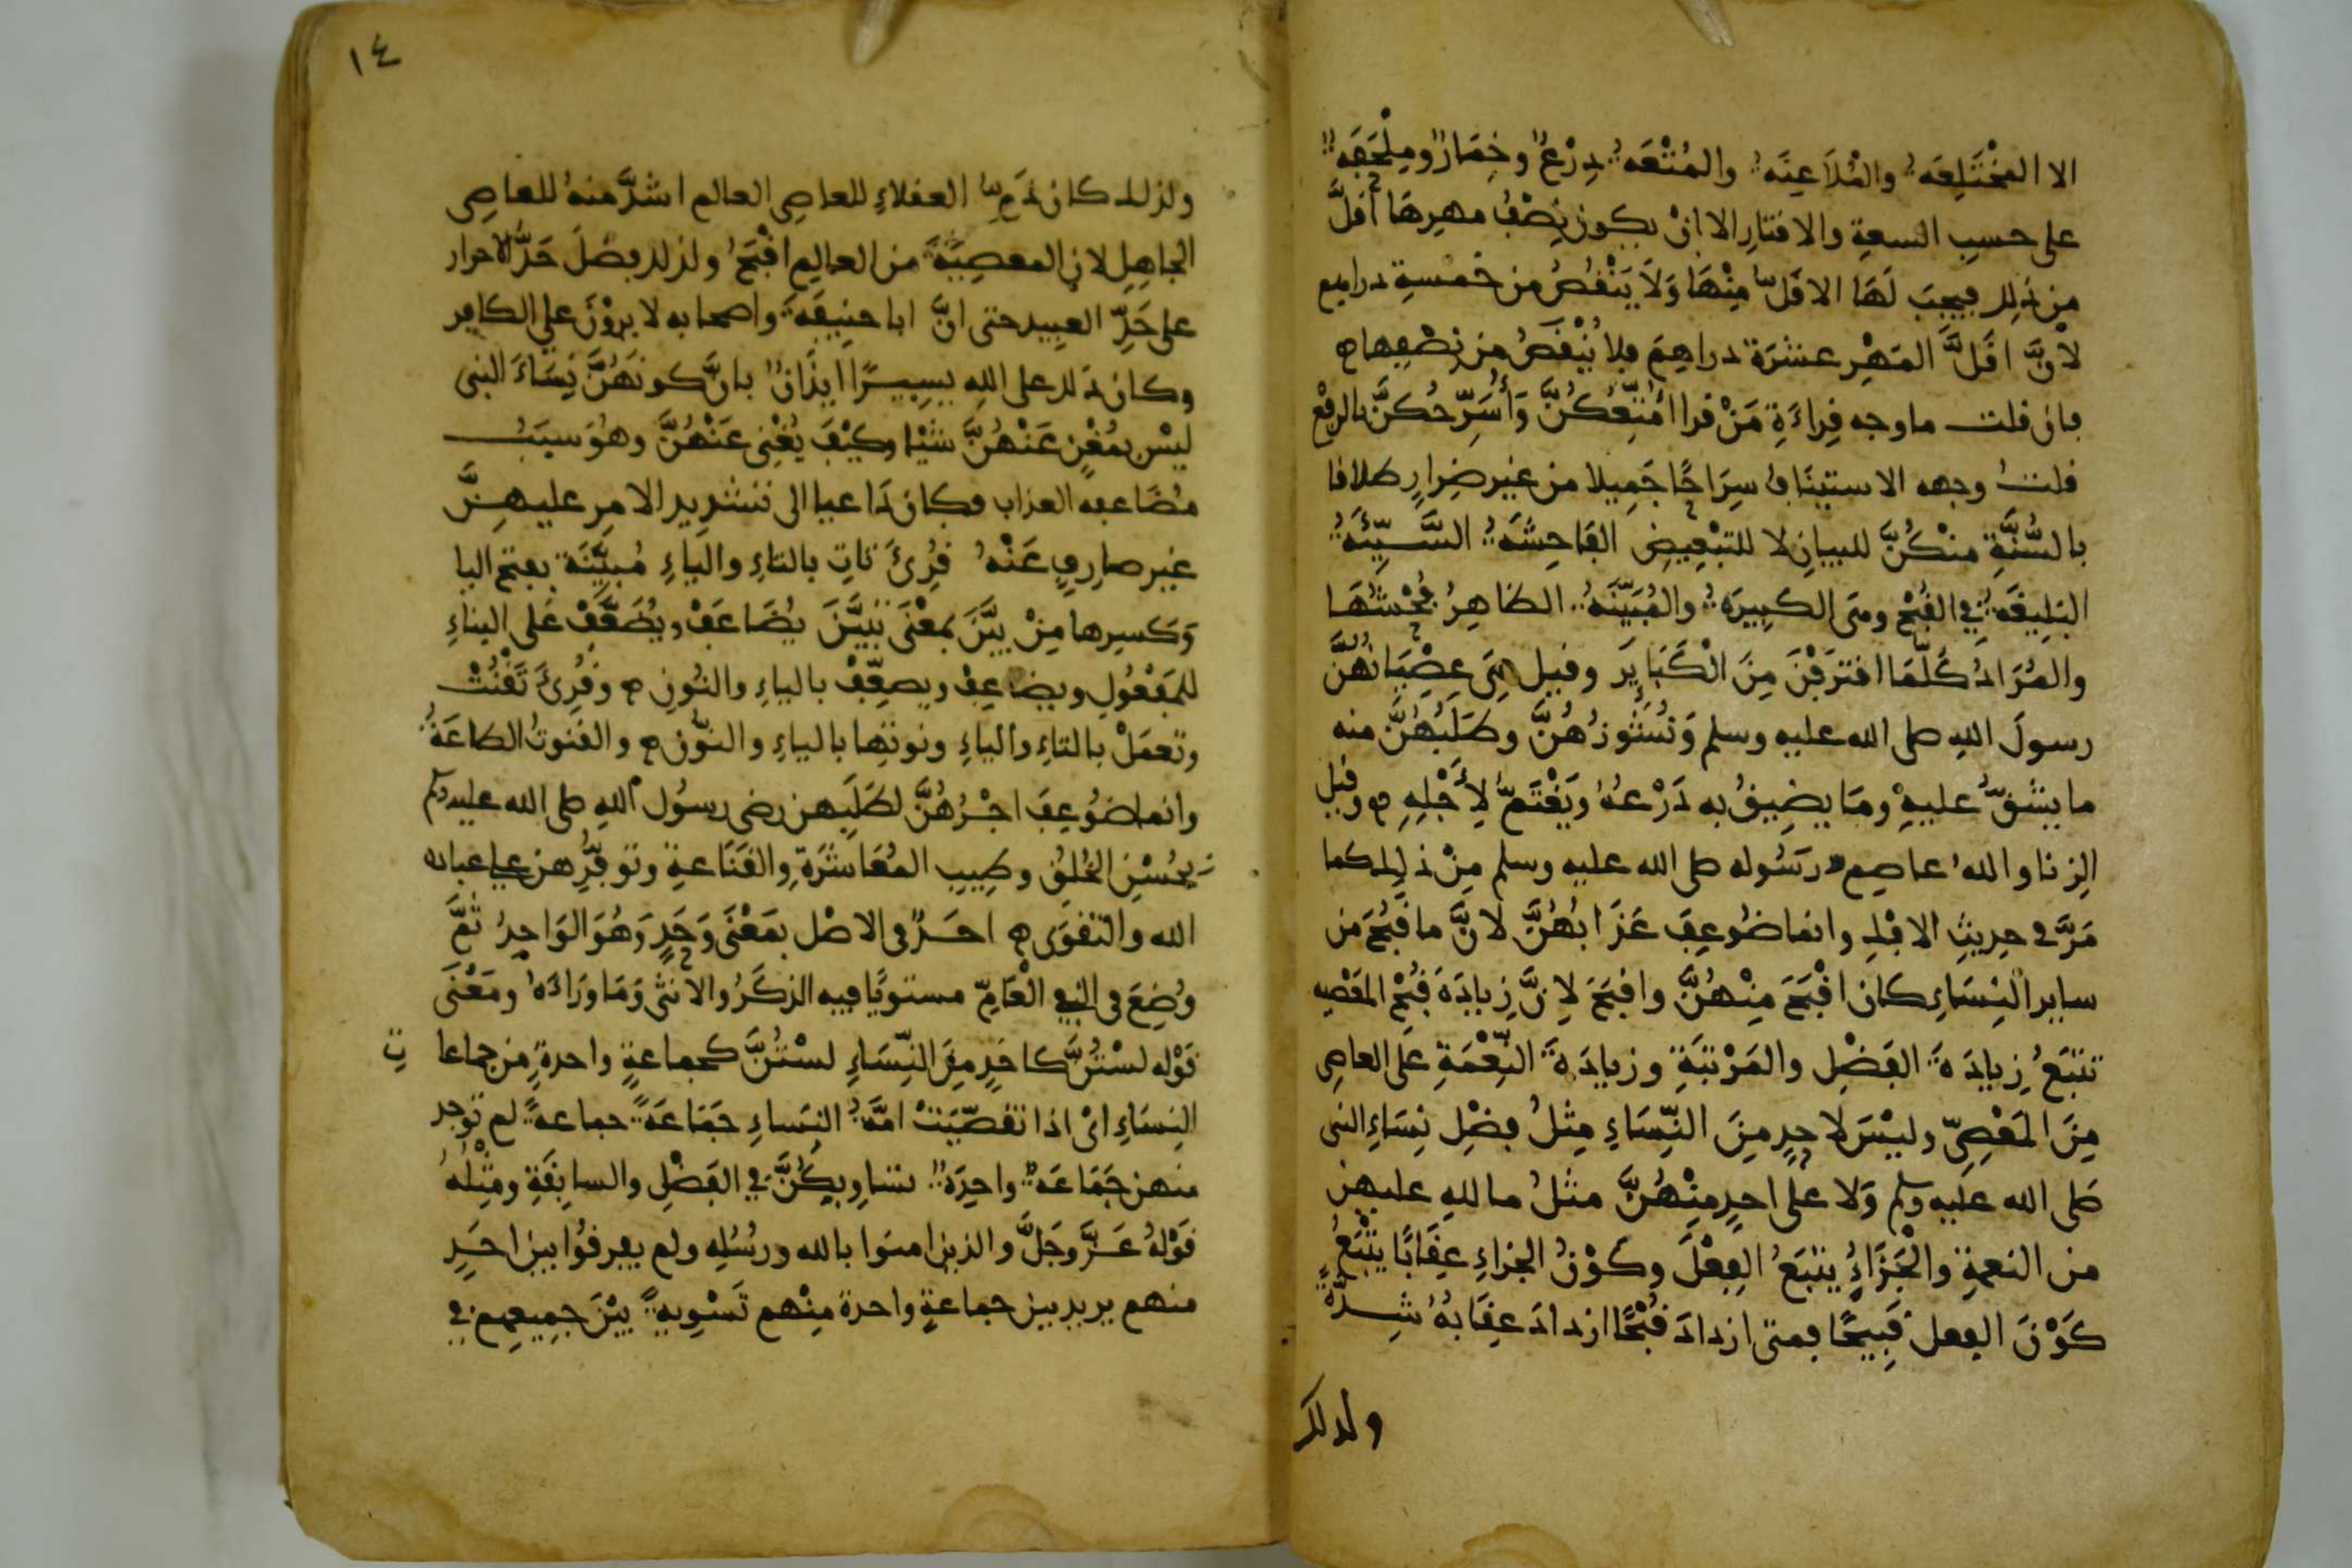 الا المُخْتَلِعَةُ والمُلَاعِنَةُ والمُتْعَةُ دِرْعٌ وخِمَارٌ ومِلْحَفَةٌ
على حسبِ السعةِ والاقتارِ الا انْ يكون نِصْفُ مهرِهَا أقلَّ
مِن ذلك فيجِبَ لَهَا الاقَلُّ مِنْهَا وَلَا يَنْقُصُ من خمسةِ دراهم
لأنَّ اقَلَّ المَهْرِ عشرَة دراهِمَ فلا يُنْقَصُ مِن نِصْفِها ه
فان قلت ما وجه قِراءَةِ مَنْ قرا أُمَتِّعُكُنَّ وَأُسَرِّحُكُنَّ بالرفْعِ
قلتُ وجهه الاستيِنَافُ سِرَاحًا جَمِيلا من غيرِ ضِرارٍ طلاقا
بالسُّنَّةِ منْكُنَّ للبيانِ لا للتبْعِيضِ الفَاحِشَةُ السَّيِّئَةُ
البَلِيغَةُ في القُبْحِ وهى الكبِيرَةُ والمُبَيِّنَةُ الظاهِرُ فُحْشُهَا
والمُرَادُ كُلّمَا اقترَفْنَ مِنَ الْكَبَايِرِ وقيل هِىَ عِصْيَانُهُنَّ
رسولَ اللهِ صلى الله عليه وسلم وَنُشُوزُهُنَّ وطَلَبُهُنَّ منه
ما يشقُّ عليهِ ومَا يضِيقُ به ذَرْعُهُ وَيَغْتَمُّ لِأَجْلِهِ ه وقيل
الزِنا واللهُ عاصِمٌ رسُوله صلى الله عليه وسلم مِنْ ذلِك كما
مَرَّ في حدِيثِ الافْكِ وانما ضُوعِفَ عَذَابُهُنَّ لأنَّ ما قَبُحَ من
سايرِ النِسَاءِ كان اقْبَحَ مِنْهُنَّ واقبَحَ لاِنَّ زِيادَةَ قُبْحِ المَعْصِيه
تتبَعُ زِيادَةَ الفَضْلِ والمَرْتَبَةِ وزيادَةَ النِّعْمَةِ عَلى العاصِى
مِنَ المَعْصِىِّ وليْسَ لاحدٍ مِنَ النِّسَاءِ مِثلُ فضْلِ نِسَاءِ النبى
صَلى الله عليه وسلم وَلا على احدٍ مِنْهُنَّ مثلُ ما للهِ عليهِن
من النعمةِ والْجَزَاءُ يتبَعُ الفِعْلَ وكوْنُ الجزاءِ عِقَابًا يتْبَعُ
كَوْنَ الفِعل قَبِيحًا فمتى ازدادَ قُبْحًا ازدادَ عِقَابُهُ شِدَّةً
ولذلك
١٤
ولذلك كان ذَمُّ العقلاءِ للعاصِى العالم اشدَّ منهُ للعاصِى
الجاهِلِ لانِ المعصِيَةَ من العالِمِ اقْبَحُ ولذلك فضَلَ حَدُّ الاحرار
على حَدِّ العبِيد حتى انَّ ابا حنِيفَةَ واصحابه لا يروْنَ على الكافر
وكان ذلك على الله يسِيرًا ايذَانٌ بانَّ كونَهُنَّ نِسَاءَ النبى
ليْس بمُغْنٍ عَنْهُنَّ شيْا وكيْفَ يُغْنِى عَنْهُنَّ وهُوَ سبَبُ
مُضَاعفه العذاب فكان دَاعيا الى تشدِيدِ الامرِ عليهِنَّ
غير صارِفٍ عَنْهُ قُرِئَ تاتِ بالتاءِ والياءِ مُبيّنَة بفتح اليا
وَكسرِها مِنْ بيَّنَ بمعْنَى تبيَّنَ يُضَاعَفْ ويُضَعَّفْ عَلى البناءِ
للمَفْعُولِ ويضاعِفْ ويضعِّفْ بالياءِ والنُونِ ه وقُرِئَ تَقْنُتْ
وتعمَلْ بالتاءِ والياءِ ونوتها بالياءِ والنوُّن ه والقنوتُ الطاعَةُ
وانما ضُوعِفَ اجْرُهُنَّ لطَلَبِهن رضى رسُول اللهِ صلى الله عليه وسلم
بحُسْنِ الخُلقِ وطِيبِ المُعَاشَرَةِ والقنَاعةِ وتوفُّرِهن على عبادة
الله والتقوَى ه احَدٌ فى الاصْل بمَعْنَى وَحَدٍ وَهُوَ الوَاحِدُ ثُمَّ
وُضِعَ فى النفى الْعَامِّ مستويًا فيه الذكَرُ والانثى وَمَا وَرَاءَهُ ومَعْنَى
قوْله لسْتُنَّ كاحَدٍ مِنَ النِّسَاءِ لسْتُنَّ كجماعةٍ واحدةٍ مِن جماعا تِ
النِسَاءِ اىْ اذا تقصّيَتْ امَّةُ النِسَاءِ جَمَاعَةً جماعةً لم توجد
منهن جَمَاعَةٌ واحِدَةٌ تساويكُنَّ في الفَضْلِ والسابِقَةِ ومِثْلُهُ
قوْلهُ عَزَّ وجَلَّ والذين امنوا بالله ورسُلِهِ ولم يفرقُوا بين احَدٍ
منهم يريد بين جماعةٍ واحدة مِنْهم تَسْوِيةً بيْنَ جمِيعِهم في